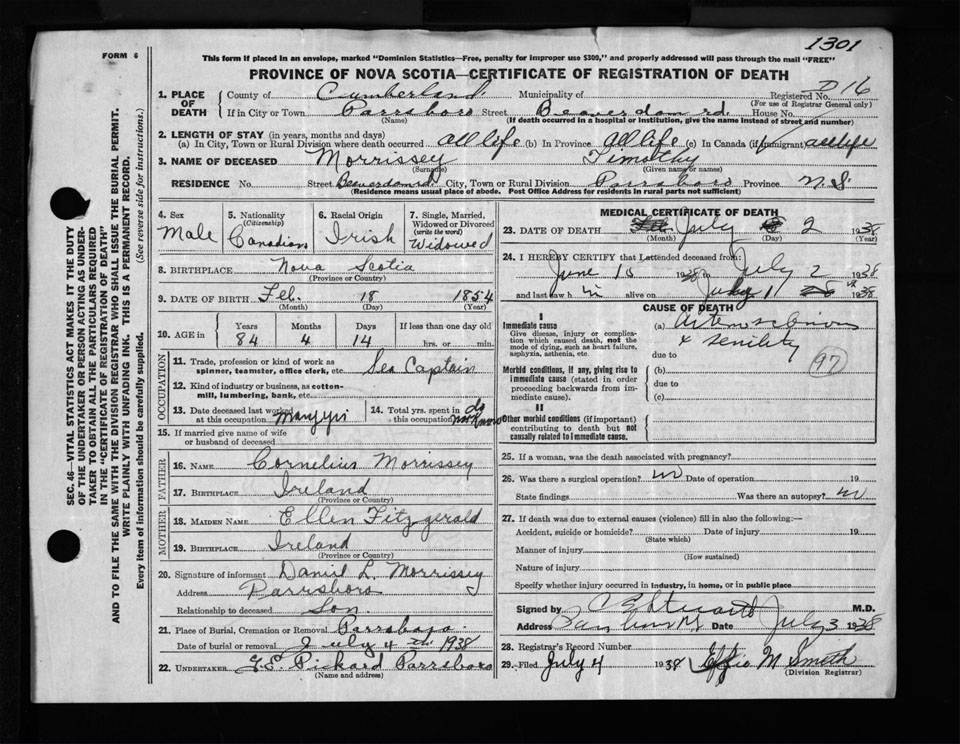 1301
FORM 6
This form if placed in an envelope, marked "Dominion Statistics—Free, penalty for improper use $300," and properly addressed will pass through the mail "FREE"
PROVINCE OF NOVA SCOTIA—CERTIFICATE OF REGISTRATION OF DEATH
SEC. 46—VITAL STATISTICS ACT MAKES IT THE DUTY
OF THE UNDERTAKER OR PERSON ACTING AS UNDER-
TAKER TO OBTAIN ALL THE PARTICULARS REQUIRED
IN THE "CERTIFICATE OF REGISTRATION OF DEATH"
AND TO FILE THE SAME WITH THE DIVISION REGISTRAR WHO SHALL ISSUE THE BURIAL PERMIT.
WRITE PLAINLY WITH UNFADING INK. THIS IS A PERMANENT RECORD.
Every item of information should be carefully supplied. (See reverse side for instructions.)
1. PLACE OF DEATH
County of Cumberland Municipality of Registered No. D16
(For use of Registrar General only)
If in City or Town Parrsboro Street Beaverdam rd. House No.
(Name) (If death occurred in a hospital or institution, give the name instead of street and number)
2. LENGTH OF STAY (in years, months and days)
(a) In City, Town or Rural Division where death occurred all life (b) In Province all life (c) In Canada (if immigrant) all life
3. NAME OF DECEASED Morrissey Timothy
(Surname) (Given name or names)
RESIDENCE No. Street Beaverdam rd City, Town or Rural Division Parrsboro Province N.S.
(Residence means usual place of abode. Post Office Address for residents in rural parts not sufficient)
4. Sex Male
5. Nationality (Citizenship) Canadian
6. Racial Origin Irish
7. Single, Married, Widowed or Divorced (write the word) Widowed
8. BIRTHPLACE Nova Scotia
(Province or Country)
9. DATE OF BIRTH Feb. 18 1854
(Month) (Day) (Year)
10. AGE in Years Months Days If less than one day old
84 4 14 hrs. or min.
OCCUPATION
11. Trade, profession or kind of work as spinner, teamster, office clerk, etc. Sea Captain
12. Kind of industry or business, as cotton-mill, lumbering, bank, etc.
13. Date deceased last worked at this occupation many yrs
14. Total yrs. spent in this occupation do not know
15. If married give name of wife or husband of deceased
FATHER
16. NAME Cornelius Morrissey
17. BIRTHPLACE Ireland
(Province or Country)
MOTHER
18. MAIDEN NAME Ellen Fitzgerald
19. BIRTHPLACE Ireland
(Province or Country)
20. Signature of informant Daniel L. Morrissey
Address Parrsboro
Relationship to deceased Son.
21. Place of Burial, Cremation or Removal Parrsboro.
Date of burial or removal July 4th 1938
22. UNDERTAKER Pickard Parrsboro
(Name and address)
MEDICAL CERTIFICATE OF DEATH
23. DATE OF DEATH July 2 1938
(Month) (Day) (Year)
24. I HEREBY CERTIFY that I attended deceased from:
June 10 1938 to July 2 1938
and last saw him alive on July 1 1938
CAUSE OF DEATH
I
Immediate cause
Give disease, injury or complication which caused death, not the mode of dying, such as heart failure, asphyxia, asthenia, etc.
(a) & Senility
due to
97
Morbid conditions, if any, giving rise to immediate cause (stated in order proceeding backwards from immediate cause).
(b)
due to
(c)
II
Other morbid conditions (if important) contributing to death but not causally related to immediate cause.
25. If a woman, was the death associated with pregnancy?
26. Was there a surgical operation? no Date of operation 19
State findings Was there an autopsy? no
27. If death was due to external causes (violence) fill in also the following:—
Accident, suicide or homicide? Date of injury 19
(State which)
Manner of injury
(How sustained)
Nature of injury
Specify whether injury occurred in industry, in home, or in public place
Signed by M.D.
Address Date July 3 1938
28. Registrar's Record Number
29. Filed July 4 1938 Effie M Smith
(Division Registrar)